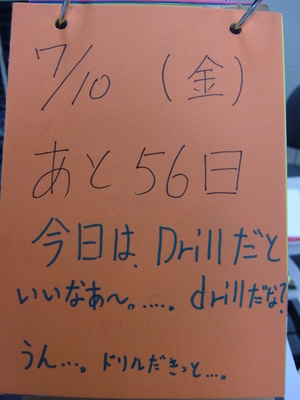 7/10 (金)
あと56日
今日は、Drillだと
いいなあ〜。……。drillだな?
うん…。ドリルだきっと…。